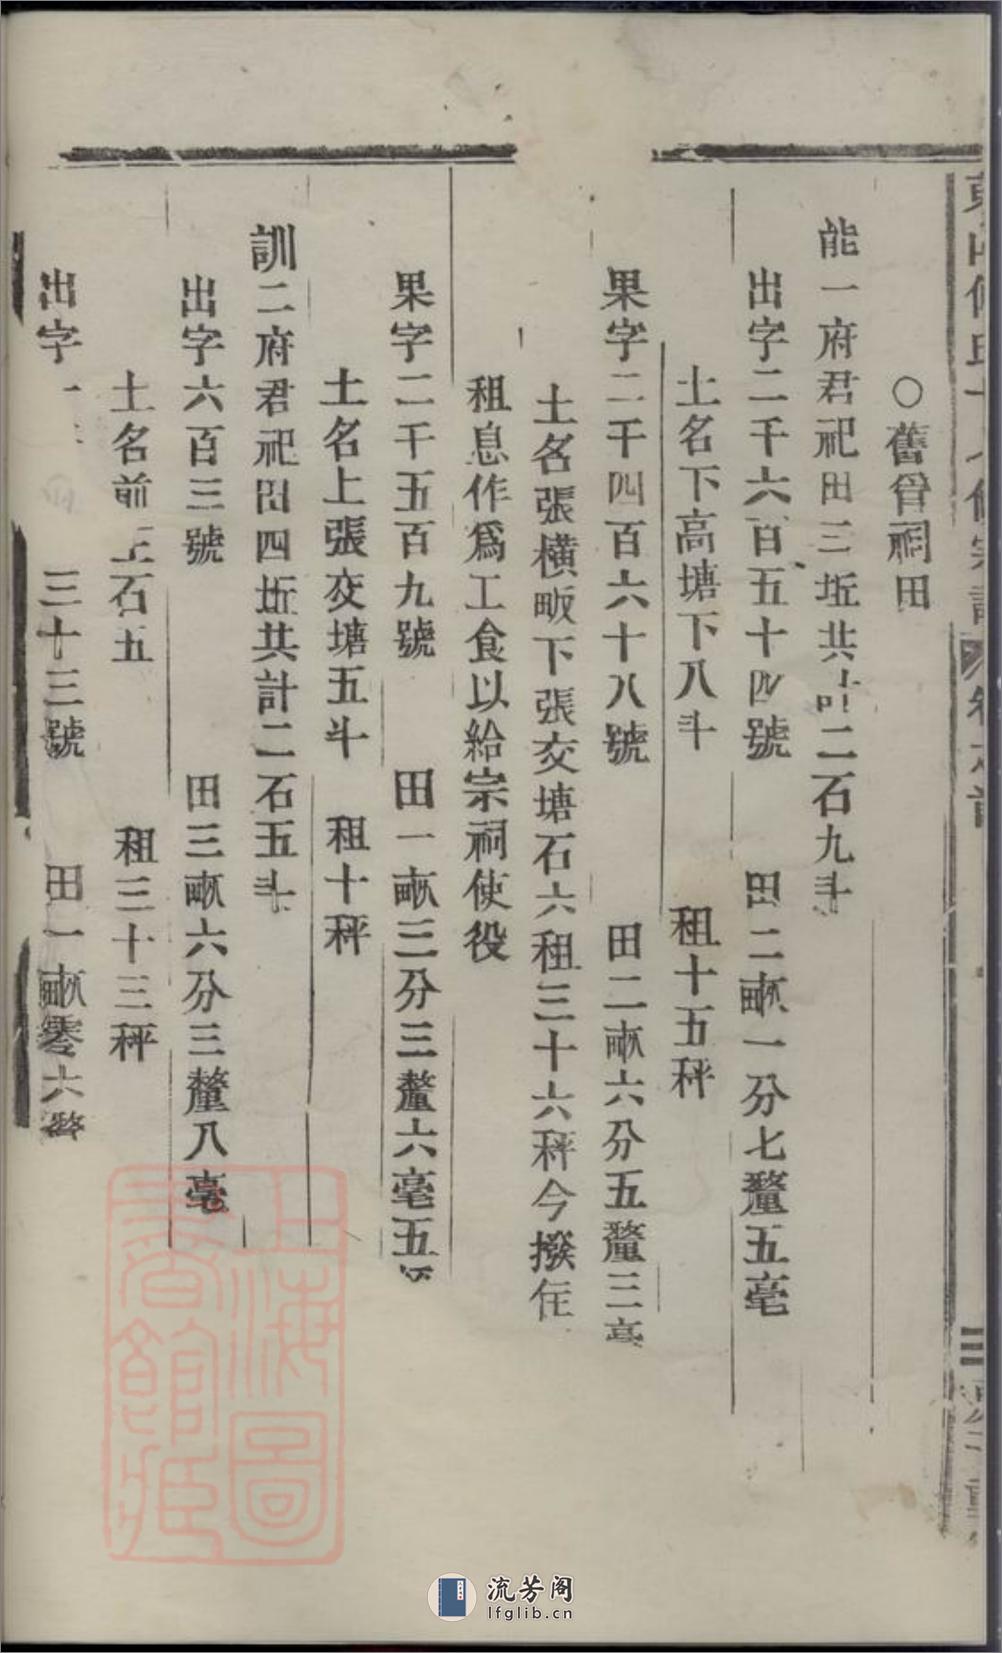 ○舊管祠田
能一府君祀田三坵共計二石九斗
出字二千六百五十四號 田二畝一分七釐五毫
土名下高塘下八斗 租十五秤
果字二千四百六十八號 田二畝六分五釐三毫
土名張橫畈下張交塘石六租三十六秤今撥住
租息作爲工食以給宗祠使役
果字二千五百九號 田一畝三分三釐六毫五
土名上張交塘五斗 租十秤
訓二府君祀田四坵共計二石五斗
出字六百三號 田三畝六分三釐八毫
土名前 石五 租三十三秤
出字 三十三號 田一畝零六釐
上海圖書館藏
流芳阁
lfglib.cn